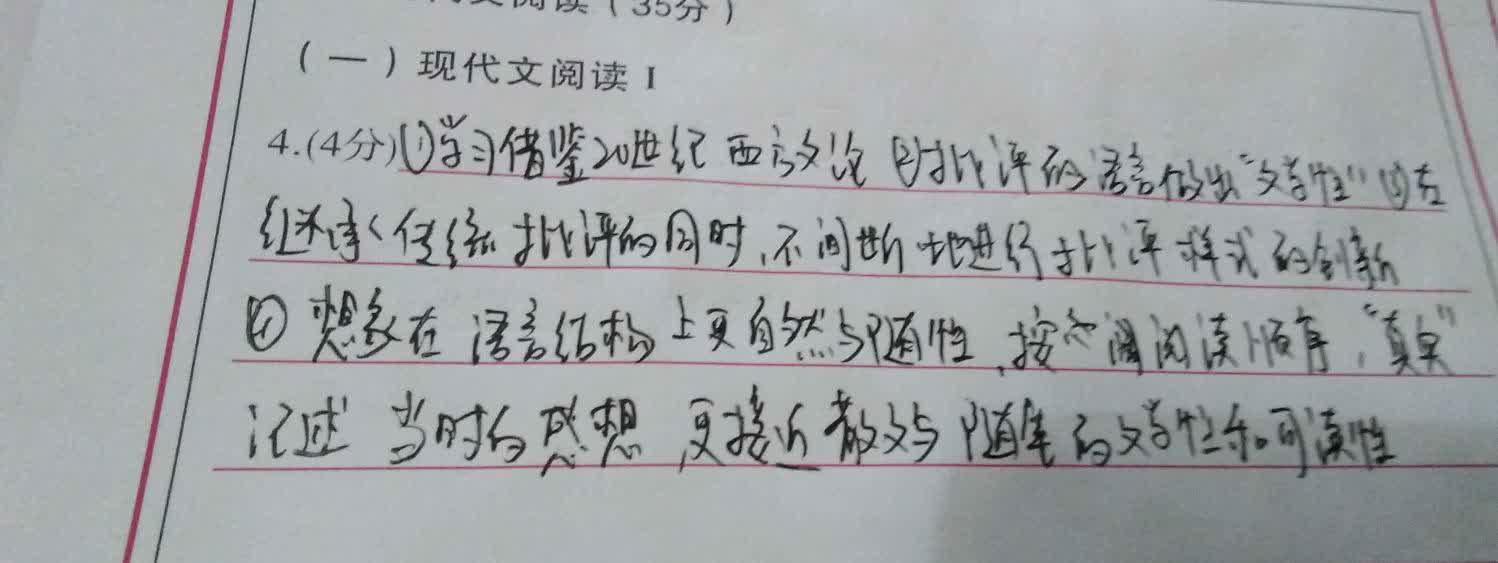 文阅读（35分）
（一）现代文阅读 I
4.(4分)①学习借鉴20世纪西方文论 ②对批评的语言做出“文学性” ③在
继承传统批评的同时,不间断地进行批评样式的创新
④ 想象在语言结构上更自然与随性,按 阅读顺序,“真实”
记述当时的感想,更接近散文与随笔的文学性和可读性